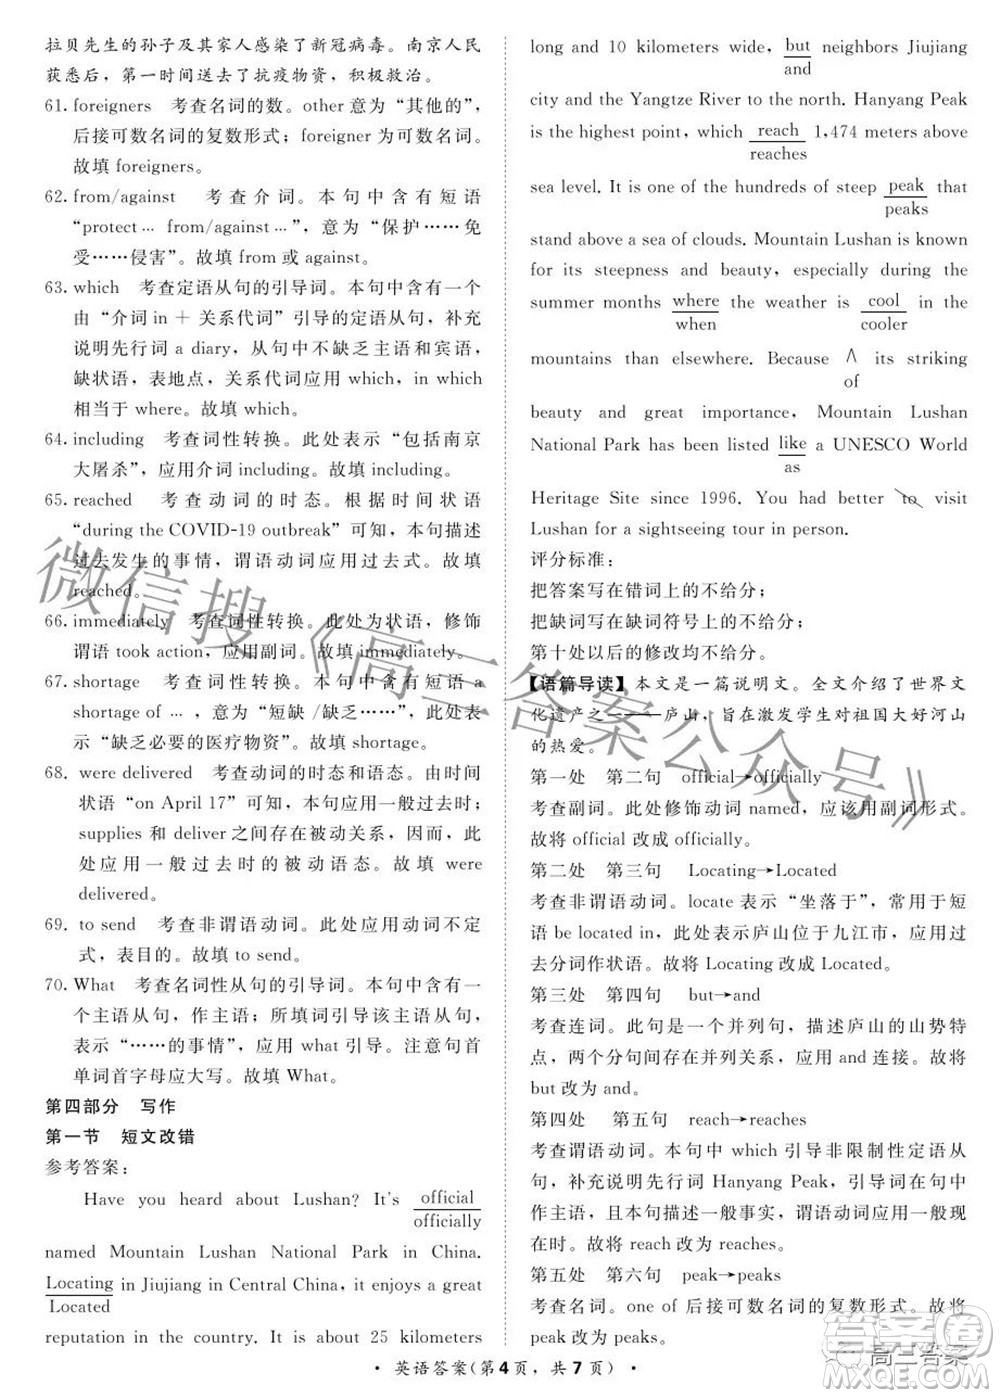 拉贝先生的孙子及其家人感染了新冠病毒。南京人民
获悉后，第一时间送去了抗疫物资，积极救治。
61. foreigners　考查名词的数。other 意为“其他的”，
后接可数名词的复数形式；foreigner 为可数名词。
故填 foreigners。
62. from/against　考查介词。本句中含有短语
“protect … from/against …”，意为“保护……免
受……侵害”。故填 from 或 against。
63. which　考查定语从句的引导词。本句中含有一个
由“介词 in ＋ 关系代词”引导的定语从句，补充
说明先行词 a diary，从句中不缺乏主语和宾语，
缺状语，表地点，关系代词应用 which，in which
相当于 where。故填 which。
64. including　考查词性转换。此处表示“包括南京
大屠杀”，应用介词 including。故填 including。
65. reached　考查动词的时态。根据时间状语
“during the COVID-19 outbreak”可知，本句描述
过去发生的事情，谓语动词应用过去式。故填
reached。
66. immediately　考查词性转换。此处为状语，修饰
谓语 took action，应用副词。故填 immediately。
67. shortage　考查名词。本句中含有短语 a
shortage of …，意为“短缺 /缺乏……”，此处表
示“缺乏必要的医疗物资”。故填 shortage。
68. were delivered　考查动词的时态和语态。由时间
状语“on April 17”可知，本句应用一般过去时；
supplies 和 deliver 之间存在被动关系，因而，此
处应用一般过去时的被动语态。故填 were
delivered。
69. to send　考查非谓语动词。此处应用动词不定
式，表目的。故填 to send。
70. What　考查名词性从句的引导词。本句中含有一
个主语从句，作主语；所填词引导该主语从句，
表示“……的事情”，应用 what 引导。注意句首
单词首字母应大写。故填 What。
第四部分　写作
第一节　短文改错
参考答案：
Have you heard about Lushan? It's official
officially
named Mountain Lushan National Park in China.
Locating in Jiujiang in Central China, it enjoys a great
Located
reputation in the country. It is about 25 kilometers
long and 10 kilometers wide, but neighbors Jiujiang
and
city and the Yangtze River to the north. Hanyang Peak
is the highest point, which reach 1,474 meters above
reaches
sea level. It is one of the hundreds of steep peak that
peaks
stand above a sea of clouds. Mountain Lushan is known
for its steepness and beauty, especially during the
summer months where the weather is cool in the
when cooler
mountains than elsewhere. Because ∧ its striking
of
beauty and great importance, Mountain Lushan
National Park has been listed like a UNESCO World
as
Heritage Site since 1996. You had better to visit
Lushan for a sightseeing tour in person.
评分标准：
把答案写在错词上的不给分；
把缺词写在缺词符号上的不给分；
第十处以后的修改均不给分。
【语篇导读】本文是一篇说明文。全文介绍了世界文
化遗产之一——庐山，旨在激发学生对祖国大好河山
的热爱。
第一处　第二句　official→officially
考查副词。此处修饰动词 named，应该用副词形式。
故将 official 改成 officially。
第二处　第三句　Locating→Located
考查非谓语动词。locate 表示“坐落于”，常用于短
语 be located in，此处表示庐山位于九江市，应用过
去分词作状语。故将 Locating 改成 Located。
第三处　第四句　but→and
考查连词。此句是一个并列句，描述庐山的山势特
点，两个分句间存在并列关系，应用 and 连接。故将
but 改为 and。
第四处　第五句　reach→reaches
考查谓语动词。本句中 which 引导非限制性定语从
句，补充说明先行词 Hanyang Peak，引导词在句中
作主语，且本句描述一般事实，谓语动词应用一般现
在时。故将 reach 改为 reaches。
第五处　第六句　peak→peaks
考查名词。one of 后接可数名词的复数形式。故将
peak 改为 peaks。
• 英语答案(第 4 页，共 7 页) •
微信搜《高三答案公众号》
答案圈
高三答案